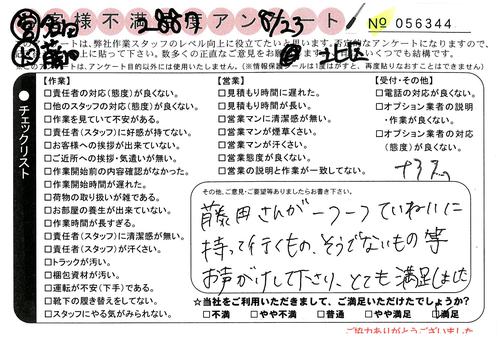 様 不 満 足 度 アンケート
№ 056344
288 8/23
ケートは、弊社作業スタッフのレベル向上に役立てたいと思います。否定的なアンケートになりますので、
に上に貼って下さい。数多くの真の正直なご意見、
、アンケート目的以外には使用いたしません。(※情報保護シールは1度はがすと、再度貼りなおすことはできません)
チェックリスト
【作業】
□責任者の対応(態度)が良くない。
□他のスタッフの対応(態度)が良くない。
□作業を見ていて不安がある。
□責任者(スタッフ)に好感が持てない。
□お客様への挨拶が出来ていない。
□ご近所への挨拶・気遣いが無い。
□作業開始前の内容確認がなかった。
□作業開始時間が遅れた。
□荷物の取り扱いが雑である。
□お部屋の養生が出来ていない。
□作業時間が長すぎる。
□責任者(スタッフ)に清潔感が無い。
□責任者(スタッフ)が汗くさい。
□トラックが汚い。
□梱包資材が汚い。
□運転が不安(下手)である。
□靴下の履き替えをしてない。
□スタッフにやる気がみられない。
【営業】
□見積もり時間に遅れた。
□見積もり時間が長い。
□営業マンに清潔感が無い。
□営業マンが煙草くさい。
□営業マンが汗くさい。
□営業態度が良くない。
□営業の説明と作業が一致してない。
【受付・その他】
□電話の対応が良くない。
□オプション業者の説明
・作業が良くない。
□オプション業者の対応
(態度)が良くない。
その他、ご意見・ご要望等ありましたらお書き下さい。
藤田さんが一つ一つていねいに
持って行くもの、そうでないもの等
お声がけして下さり、とても満足しました
☆当社をご利用いただきまして、ご満足いただけたでしょうか?
□不満 □やや不満 □普通 □やや満足 □満足
ご協力ありがとうございました